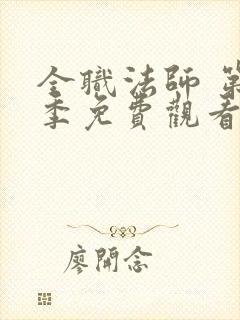 全職法師 第
季免費觀看
廖開念